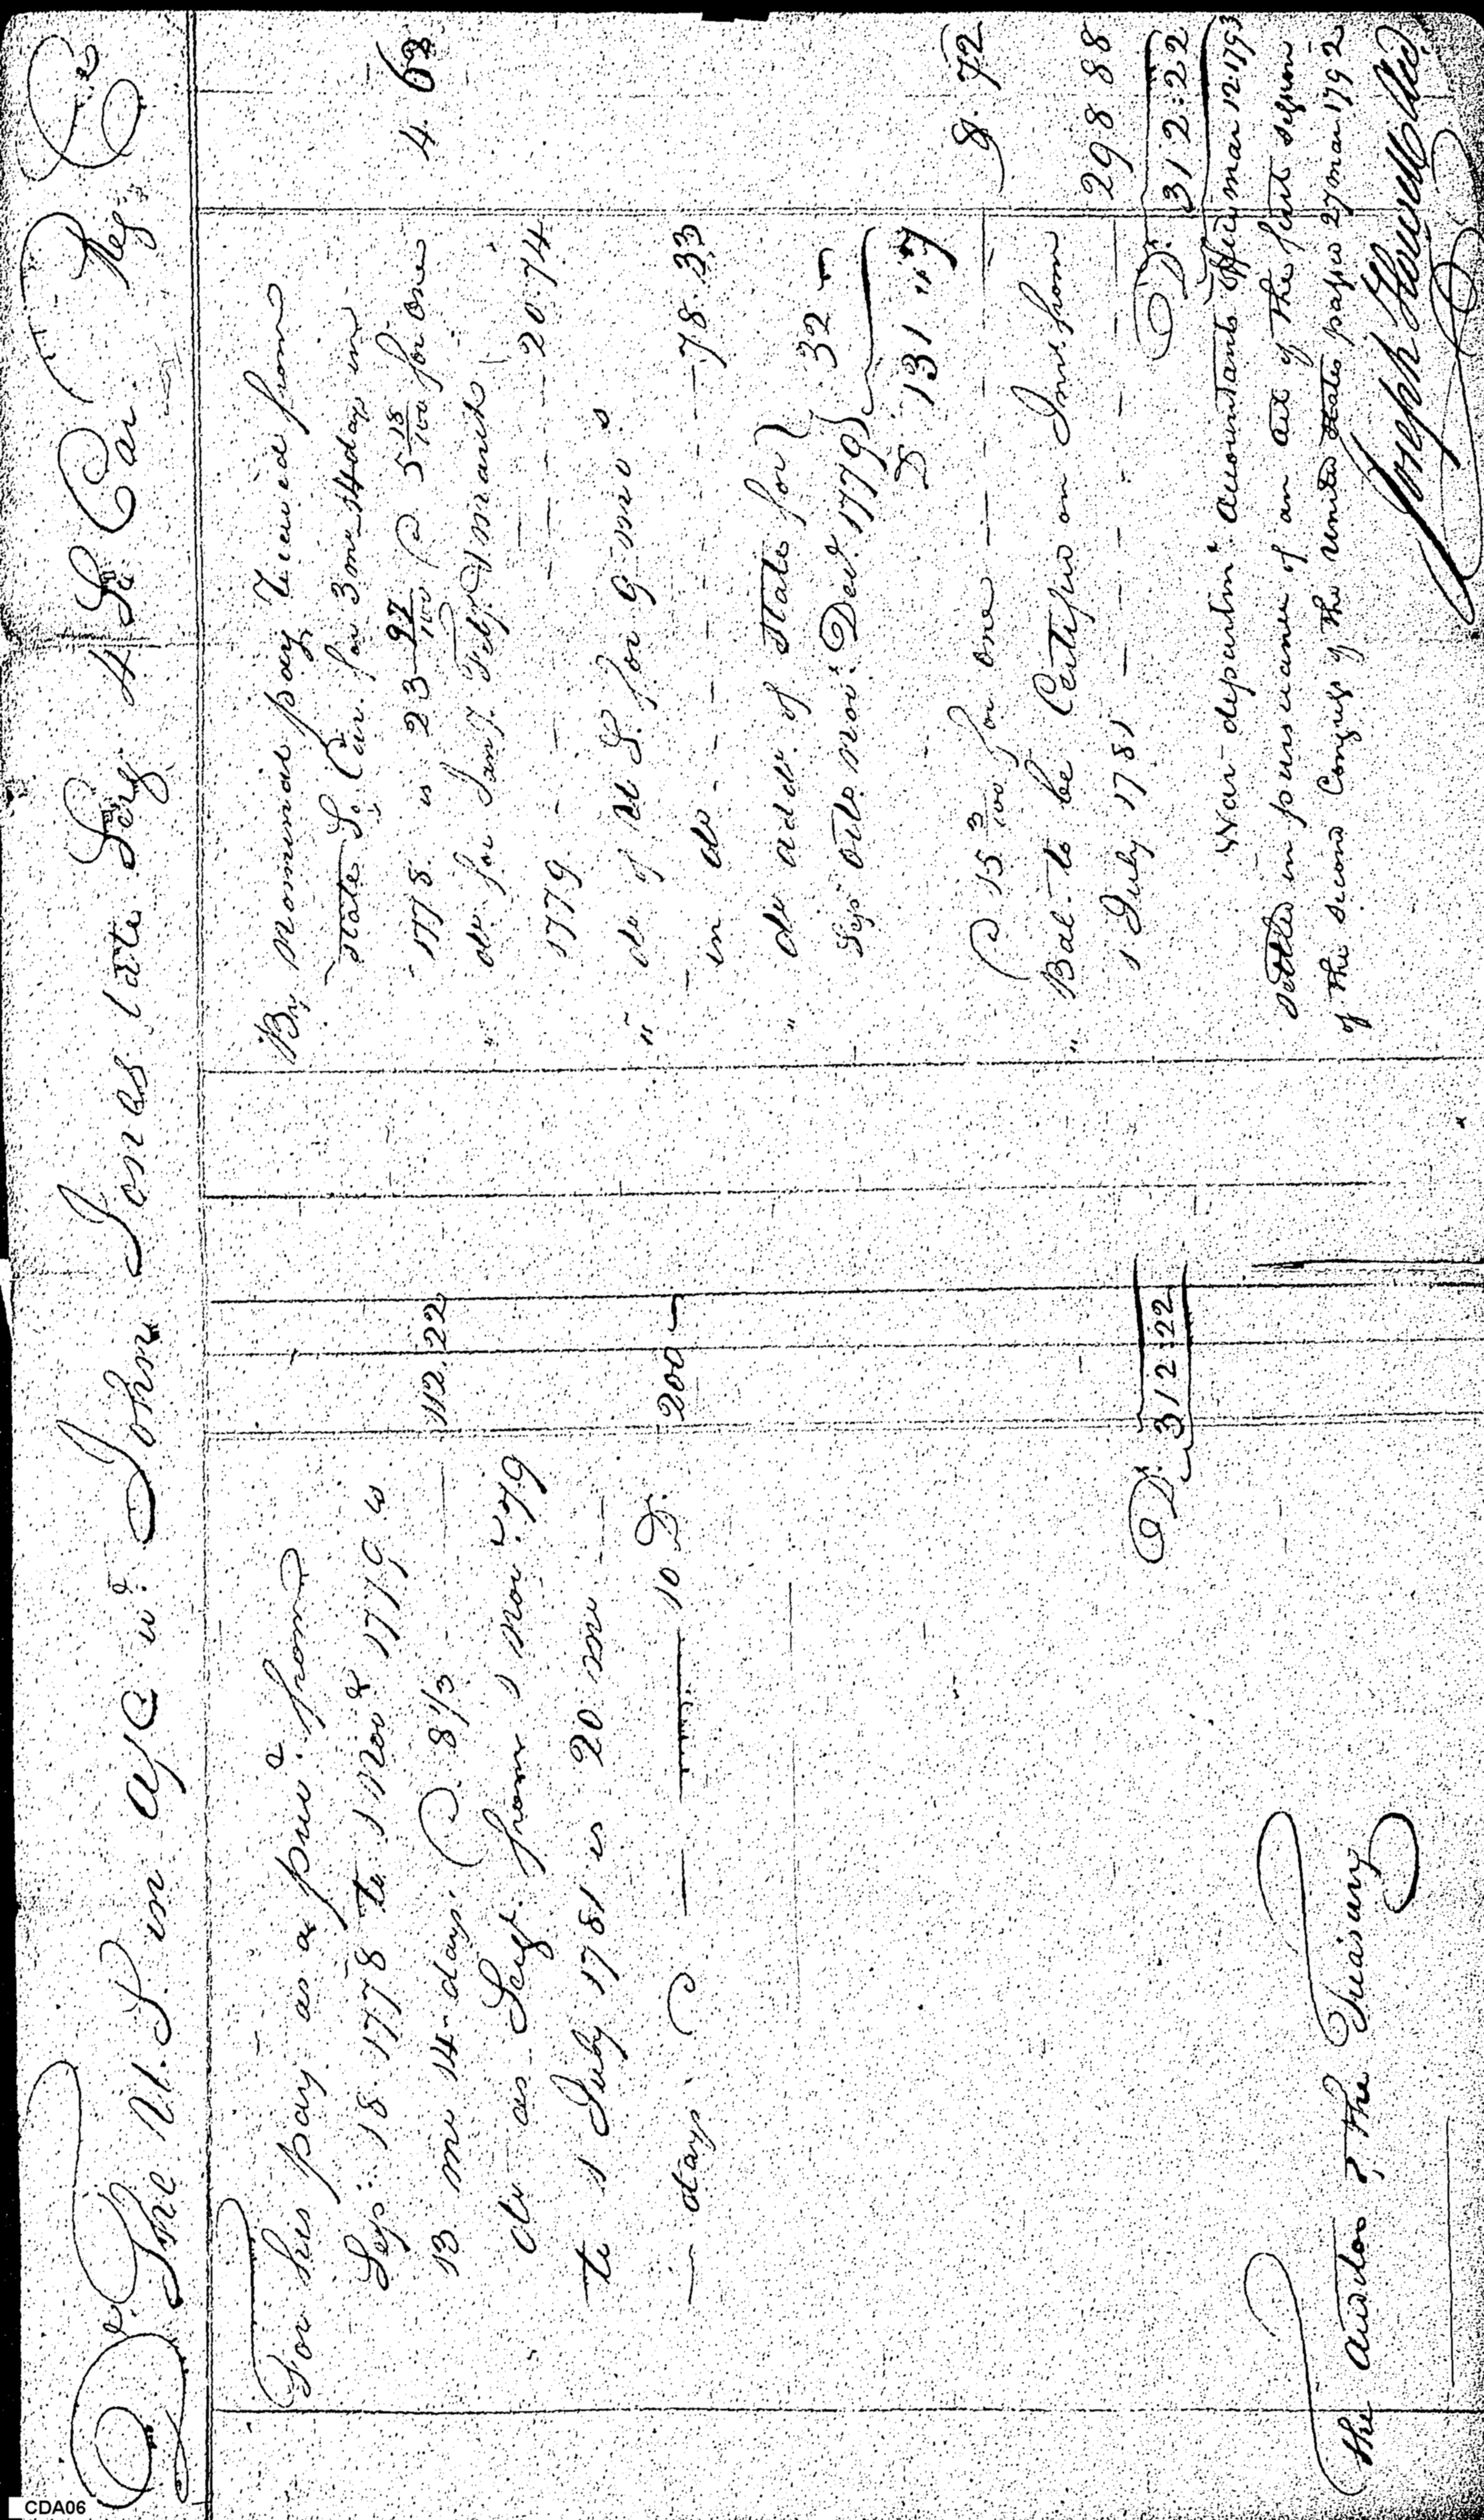 Dr. The U.S in a/c wt. John Jones late Serg. 4 So Car. Reg. Cr
For his pay as a privt. from
Sep. 18 1778 to 1 Novr 1779 is
13 mo 14 days @ 8 1/3 — 112.22
do as Sergt. from 1 Novr. 79
to 1 July 1781 is 20 mo —
— days @ — — 10 D. 200 —
Dr. 312:22
The Auditor of The Treasury
By Nominal pay received from
State So. Car. for 3 mo 14 days in
1778 is 23 97/100 @ 5 18/100 for one 4.63
" do for Jany. Feby. & march
1779 - - - - 20.74
" do of U S. for 9 mo s
in do - - - - 78.33
" do addl. of State for
Sepr Octo. Novr. Decr. 1779 } 32 —
D 131 "7
@ 15 3/100 for one — — — 8.72
" Bal. to be Certified on Int. from
1 July 1781 — — - - 298 88
Dr. 312:22
War departmt. accountants Office mar 12 1793
Settled in pursuance of an act of the first session
of the second Congress of the united States passed 27 mar 1792
Joseph Howell
CDA06